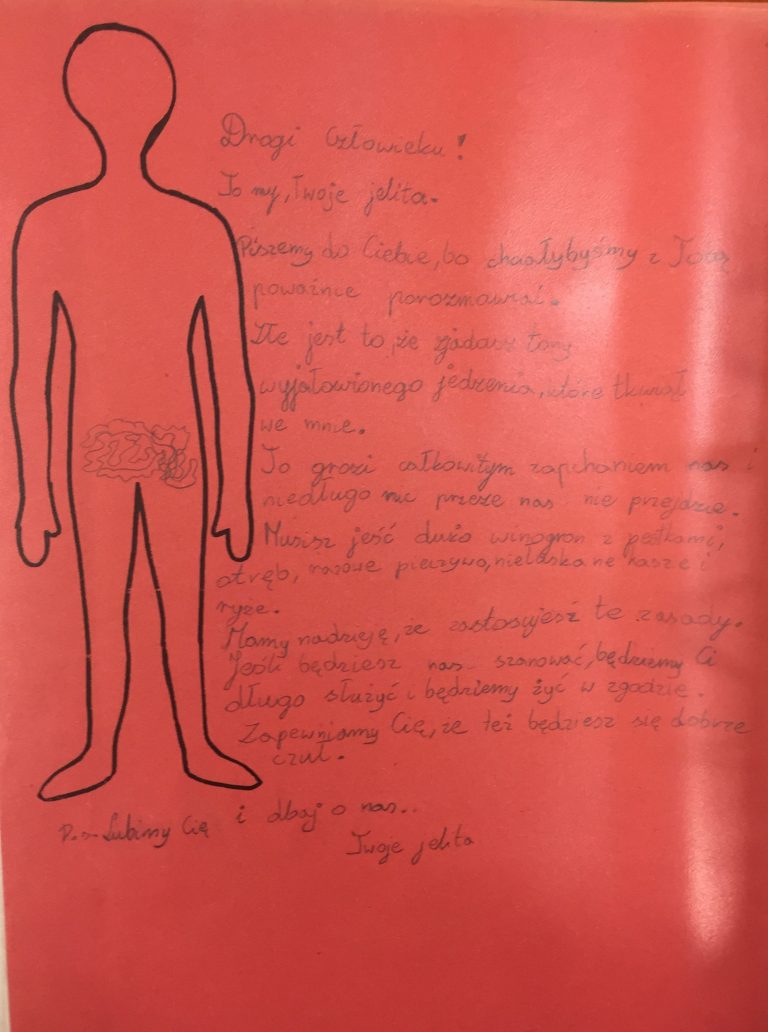 Drogi Człowieku!
To my, Twoje jelita.
Piszemy do Ciebie, bo chciałybyśmy z Tobą
poważnie porozmawiać.
Źle jest to, że zjadasz tony
wyjałowionego jedzenia, które tkwią
we mnie.
To grozi całkowitym zapchaniem nas i
niedługo nic przeze nas nie przejdzie.
Musisz jeść dużo winogron z pestkami,
otręb, razowe pieczywo, niełuskane kasze i
ryże.
Mamy nadzieję, że zastosujesz te zasady.
Jeśli będziesz nas szanować, będziemy Ci
długo służyć i będziemy żyć w zgodzie.
Zapewniamy Cię, że też będziesz się dobrze
czuł.
P.s. Lubimy Cię i dbaj o nas..
Twoje jelita